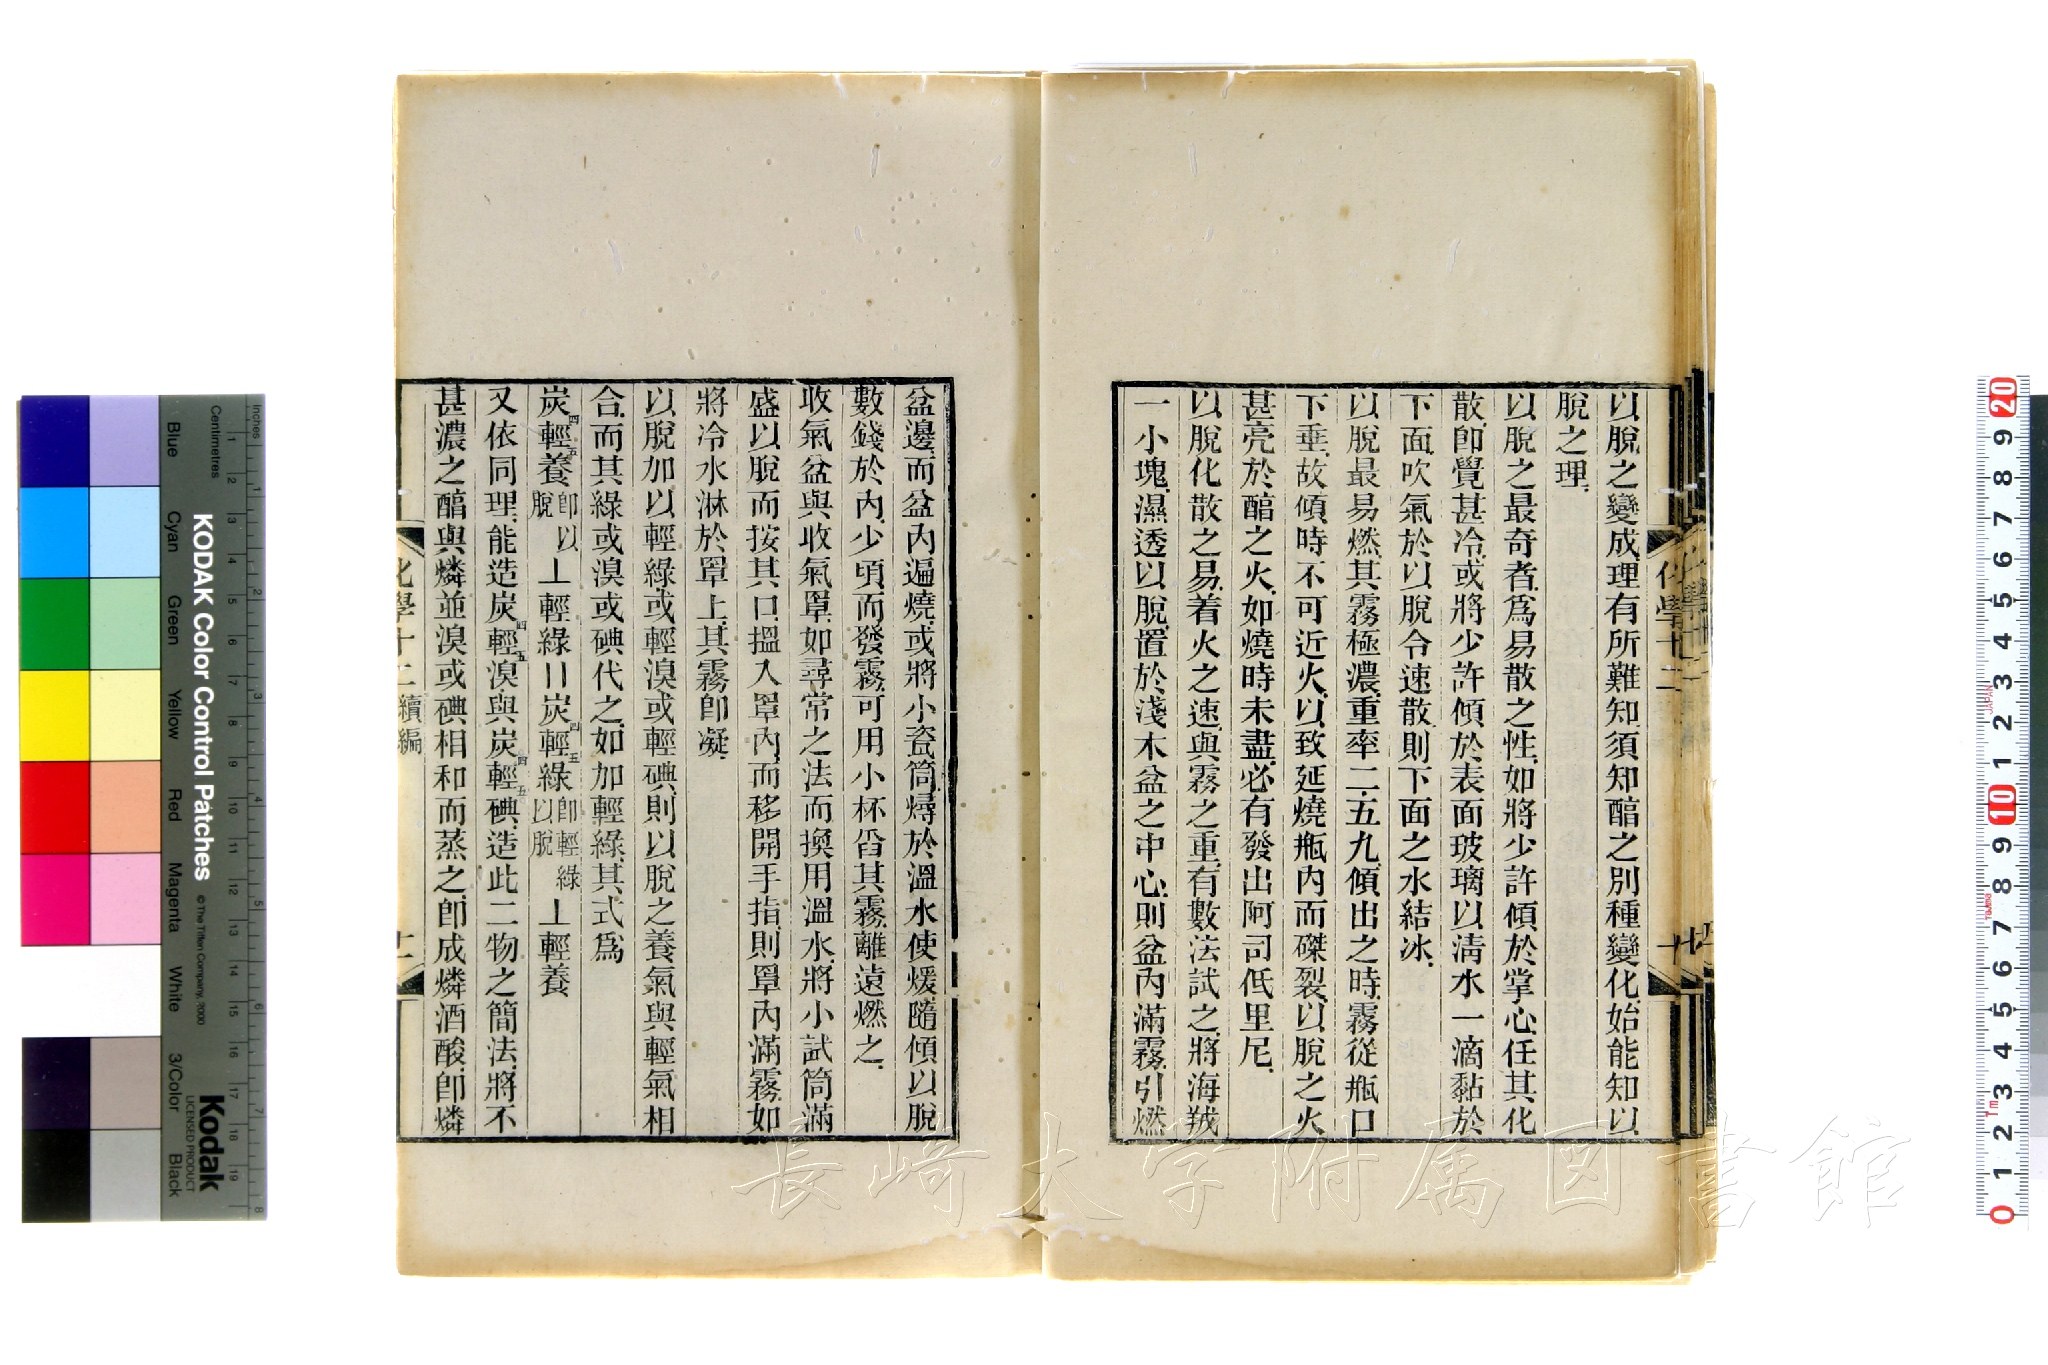 以脫之變成理有所難知須知醕之別種變化始能知以
脫之理
以脫之最奇者為易散之性如將少許傾於掌心任其化
散卽覺甚冷或將少許傾於表面玻璃以淸水一滴黏於
下面吹氣於以脫令速散則下面之水結冰
以脫最易燃其霧極濃重率二五九傾出之時霧從瓶口
下垂故傾時不可近火以致延燒瓶內而磔裂以脫之火
甚亮於醕之火如燒時未盡必有發出阿司低里尼
以脫化散之易着火之速與霧之重有數法試之將海羢
一小塊濕透以脫置於淺木盆之中心則盆內滿霧引燃
盆邊而盆內遍燒或將小瓷筒燖於溫水使煖隨傾以脫
數錢於內少頃而發霧可用小杯舀其霧離遠燃之
收氣盆與收氣罩如尋常之法而換用溫水將小試筒滿
盛以脫而按其口搵入罩內而移開手指則罩內滿霧如
將冷水淋於罩上其霧卽凝
以脫加以輕綠或輕溴或輕碘則以脫之養氣與輕氣相
合而其綠或溴或碘代之如加輕綠其式為
炭四輕五養卽以脫⊥輕綠〓炭四輕五綠卽輕綠以脫⊥輕養
又依同理能造炭四輕五溴與炭四輕五碘造此二物之簡法將不
甚濃之醕與燐並溴或碘相和而蒸之卽成燐酒酸卽燐
化學十二續編
化學十二
長崎大学附属図書館
KODAK Color Control Patches
© The Tiffen Company, 2000
Kodak
LICENSED PRODUCT
Inches
Centimetres
Blue
Cyan
Green
Yellow
Red
Magenta
White
3/Color
Black